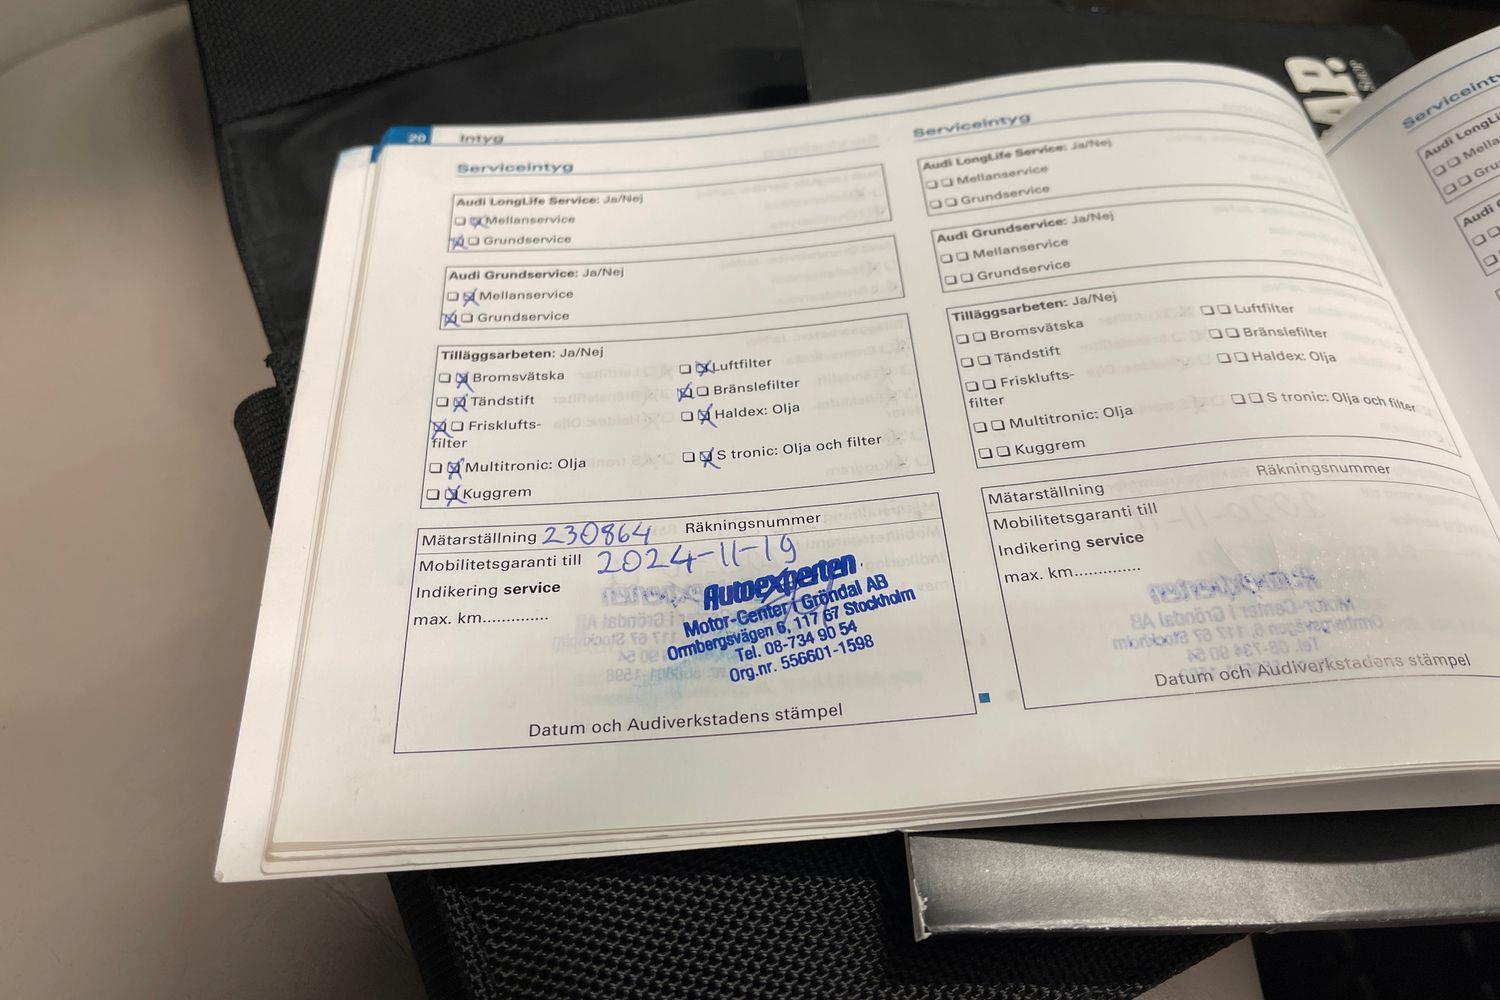 20 Intyg
Serviceintyg
Audi LongLife Service: Ja/Nej
Mellanservice
Grundservice
Audi Grundservice: Ja/Nej
Mellanservice
Grundservice
Tilläggsarbeten: Ja/Nej
Bromsvätska
Luftfilter
Tändstift
Bränslefilter
Friskluftsfilter
Haldex: Olja
Multitronic: Olja
S tronic: Olja och filter
Kuggrem
Mätarställning 230864 Räkningsnummer
Mobilitetsgaranti till 2024-11-19
Indikering service
max. km..............
Autoexperten
Motor-Center i Gröndal AB
Ormbergsvägen 6, 117 67 Stockholm
Tel. 08-734 90 54
Org.nr. 556601-1598
Datum och Audiverkstadens stämpel
Serviceintyg
Audi LongLife Service: Ja/Nej
Mellanservice
Grundservice
Audi Grundservice: Ja/Nej
Mellanservice
Grundservice
Tilläggsarbeten: Ja/Nej
Bromsvätska
Luftfilter
Tändstift
Bränslefilter
Friskluftsfilter
Haldex: Olja
Multitronic: Olja
S tronic: Olja och filter
Kuggrem
Mätarställning Räkningsnummer
Mobilitetsgaranti till
Indikering service
max. km..............
Datum och Audiverkstadens stämpel